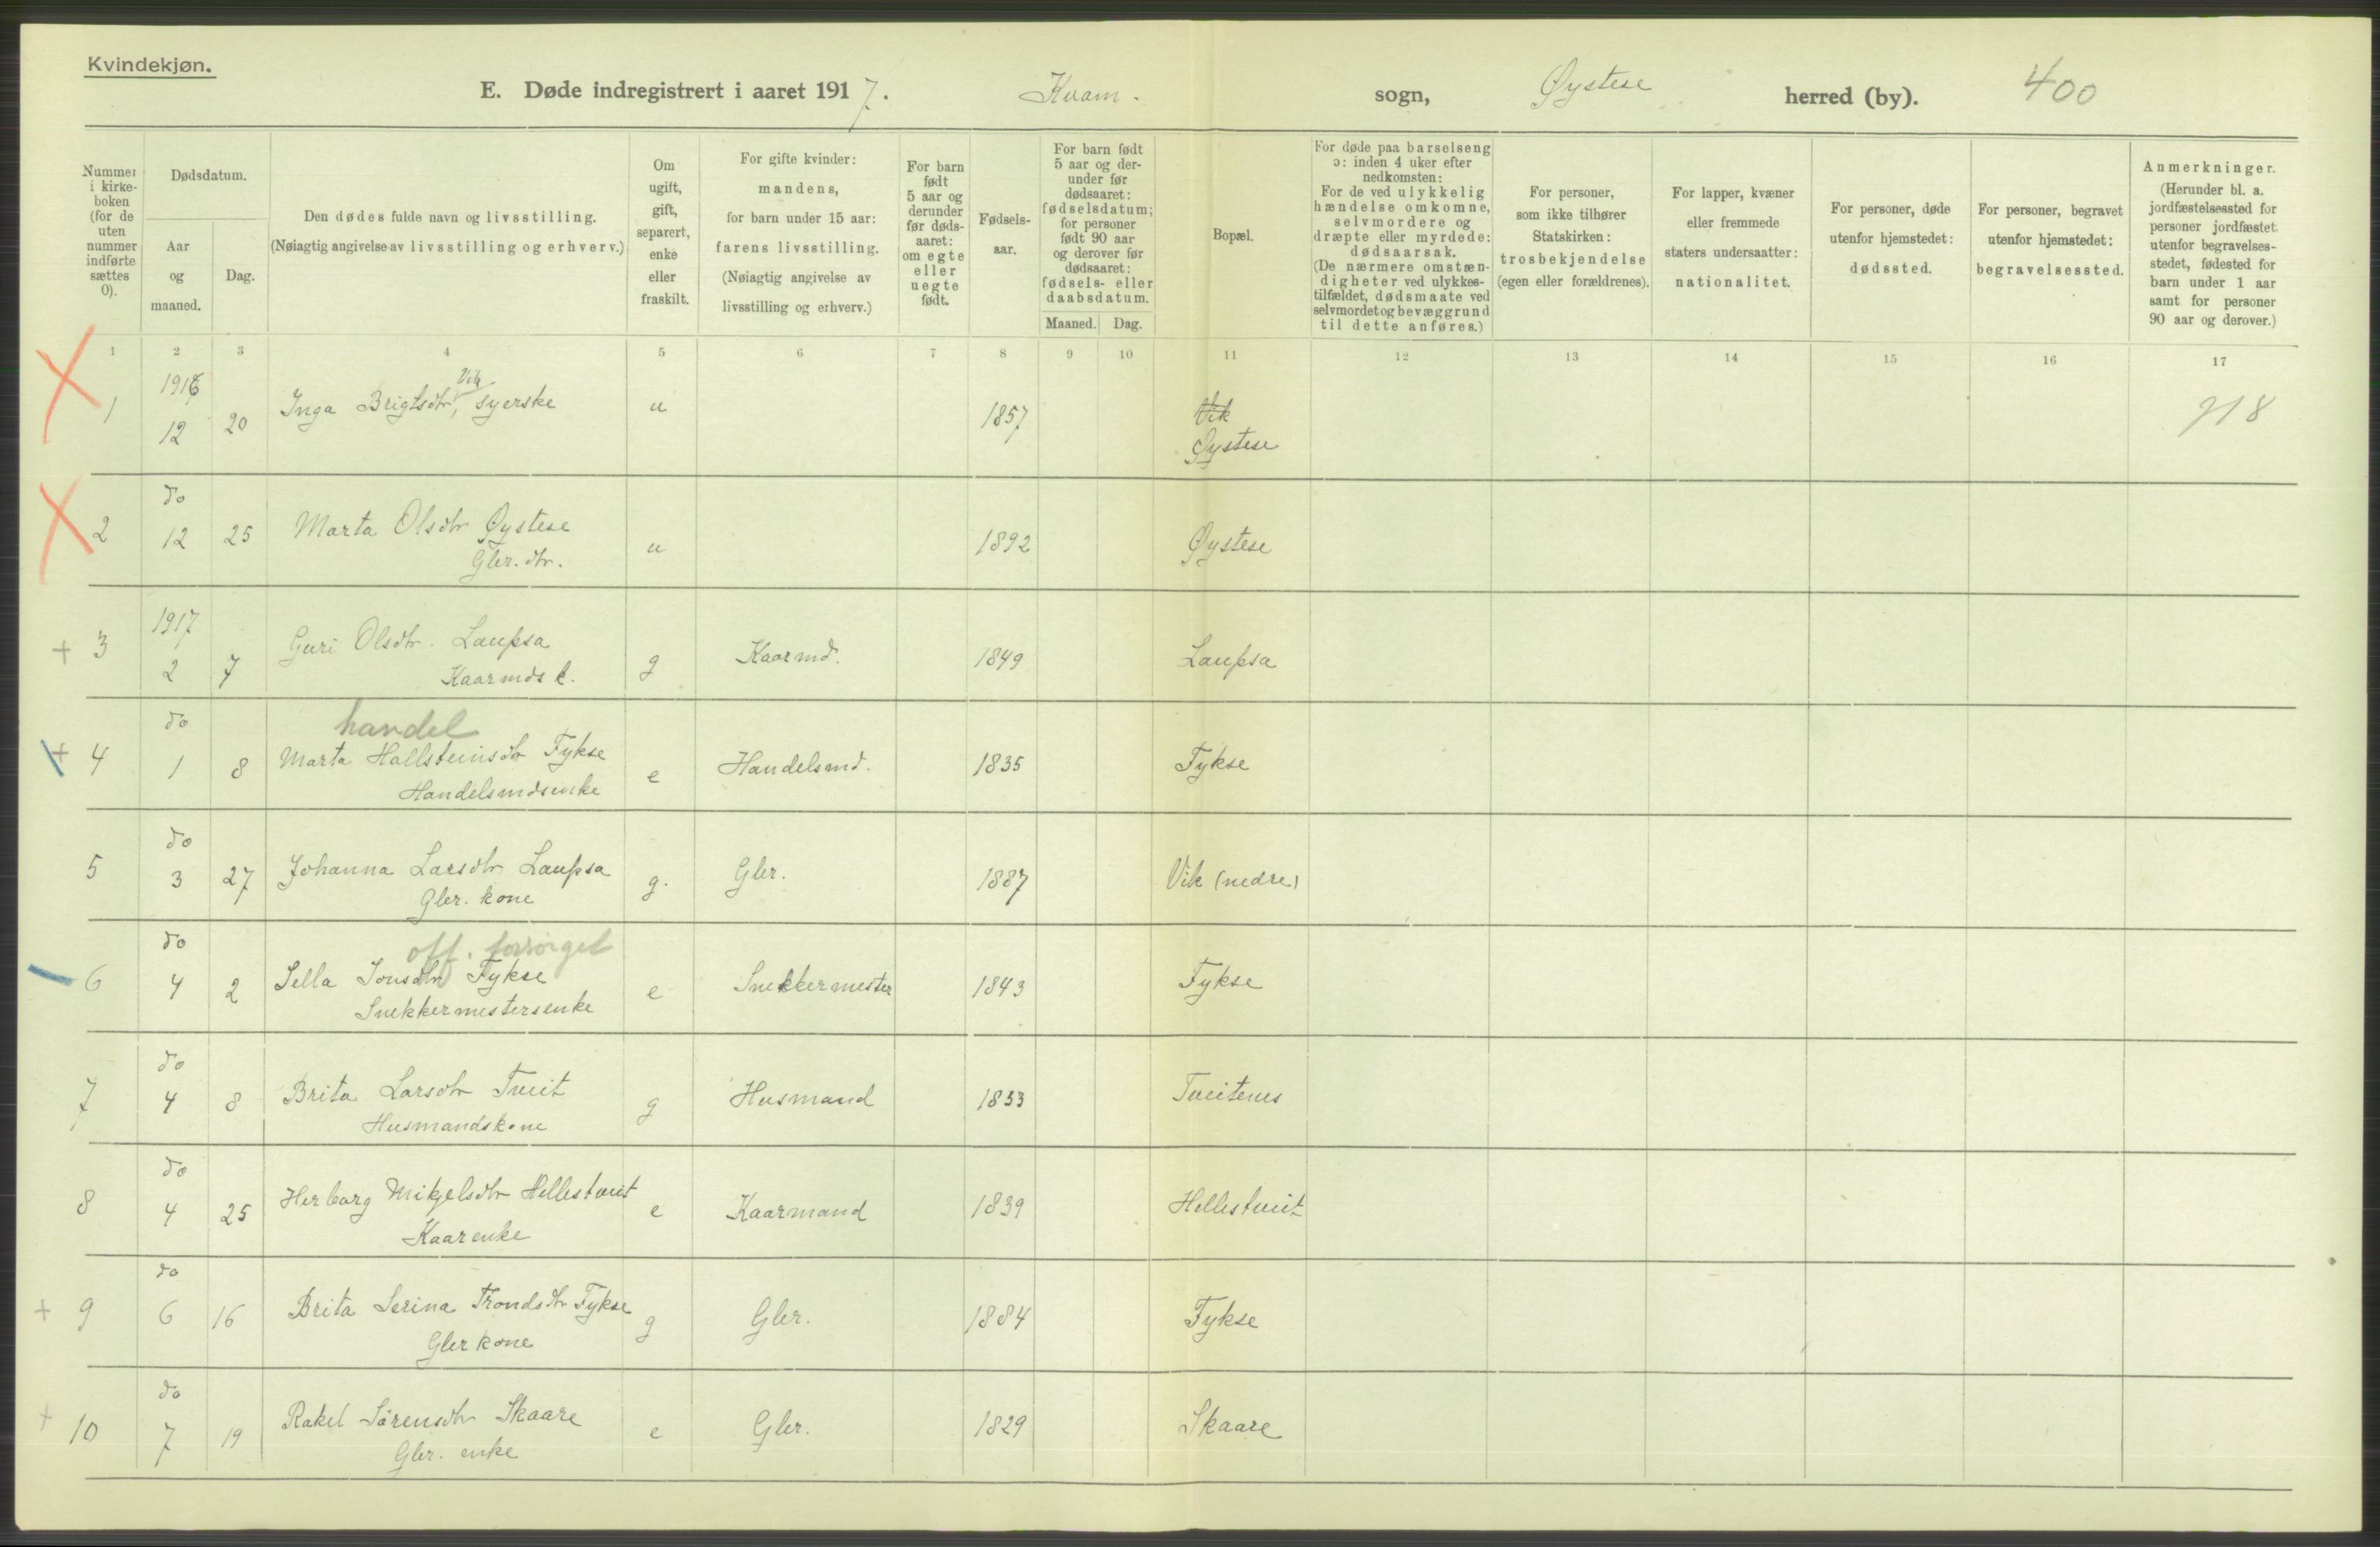 Kvindekjøn.
E. Døde indregistrert i aaret 1917. Kvam. sogn, Øystese herred (by). 400
Nummer i kirkeboken (for de uten nummer indførte sættes 0).
Dødsdatum.
Aar og maaned.
Dag.
Den dødes fulde navn og livsstilling.
(Nøiagtig angivelse av livsstilling og erhverv.)
Om ugift, gift, separert, enke eller fraskilt.
For gifte kvinder: mandens, for barn under 15 aar: farens livsstilling. (Nøiagtig angivelse av livsstilling og erhverv.)
For barn født 5 aar og derunder før dødsaaret: om egte eller uegte født.
Fødselsaar.
For barn født 5 aar og derunder før dødsaaret: fødselsdatum; for personer født 90 aar og derover før dødsaaret: fødsels- eller daabsdatum.
Maaned. Dag.
Bopæl.
For døde paa barselseng ɔ: inden 4 uker efter nedkomsten: For de ved ulykkelig hændelse omkomne, selvmordere og dræpte eller myrdede: dødsaarsak. (De nærmere omstændigheter ved ulykkestilfældet, dødsmaate ved selvmordet og bevæggrund til dette anføres.)
For personer, som ikke tilhører Statskirken: trosbekjendelse (egen eller forældrenes).
For lapper, kvæner eller fremmede staters undersaatter: nationalitet.
For personer, døde utenfor hjemstedet: dødssted.
For personer, begravet utenfor hjemstedet: begravelsessted.
Anmerkninger.
(Herunder bl. a. jordfæstelsessted for personer jordfæstet utenfor begravelsesstedet, fødested for barn under 1 aar samt for personer 90 aar og derover.)
1 2 3 4 5 6 7 8 9 10 11 12 13 14 15 16 17
1 1916 12 20 Inga Brigtsdtr Vik, syerske u 1857 Vik
Øystese 218
2 do 12 25 Marta Olsdtr Øystese u 1892 Øystese
Gbr. dtr.
3 1917 2 7 Guri Olsdtr. Laupsa g Kaarmd. 1849 Laupsa
Kaarmds k.
handel
4 do 1 8 Marta Hallsteinsdtr Fykse e Handelsmd. 1835 Fykse
Handelsmdsenke
5 do 3 27 Johanna Larsdtr Laupsa g. Gbr. 1887 Vik (nedre)
Gbr. kone
off. forsørget
6 do 4 2 Sella Jonsdtr Fykse e Snekkermester 1843 Fykse
Snekkermestersenke
7 do 4 8 Brita Larsdtr Tveit g Husmand 1833 Tveitenes
Husmandskone
8 do 4 25 Herborg Mikjelsdtr Hellestveit e Kaarmand 1839 Hellestveit
Kaarenke
9 do 6 16 Brita Serina Trondsdtr Fykse g Gbr. 1884 Fykse
Gbr kone
10 do 7 19 Rakel Sørensdtr Skaare e Gbr. 1829 Skaare
Gbr. enke